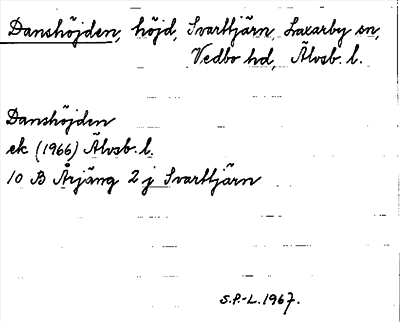 Danshöjden, höjd, Svarttjärn, Laxarby sn,
Vedbo hd, Älvsb. l.
Danshöjden
ek (1966) Älvsb. l.
10 B Årjäng 2 j Svarttjärn
S.P.-L. 1967.